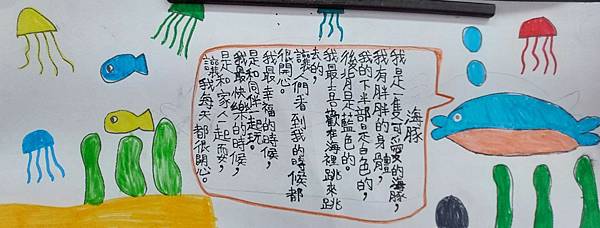 海豚
我是一隻可愛的海豚，
我有胖胖的身體，
我的下半部是白色的，
後背是藍色的。
我最喜歡在海裡跳來跳
去的，
讓人們看到我的時候都
很開心。
我最幸福的時候，
是和同伴一起玩。
我最快樂的時候，
是和家人一起面安，
讓我每天都很開心。